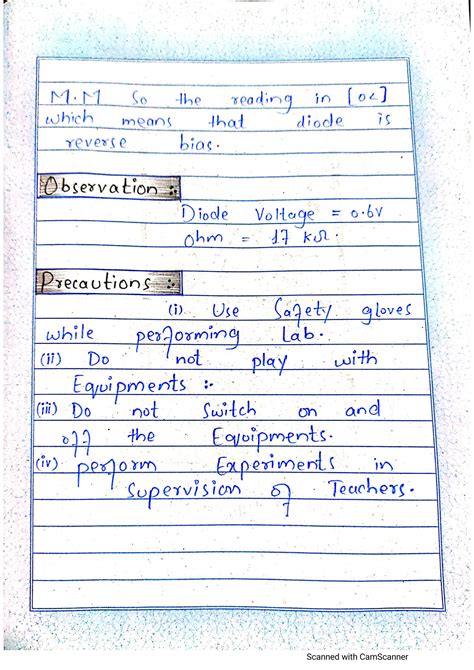 M.M So the reading in [OL]
which means that diode is
reverse bias.
Observation :-
Diode Voltage = 0.6V
Ohm = 17 kΩ.
Precautions :-
(i) Use Safety gloves
while performing Lab.
(ii) Do not play with
Equipments :-
(iii) Do not Switch on and
off the Equipments.
(iv) perform Experiments in
Supervision of Teachers.
Scanned with CamScanner